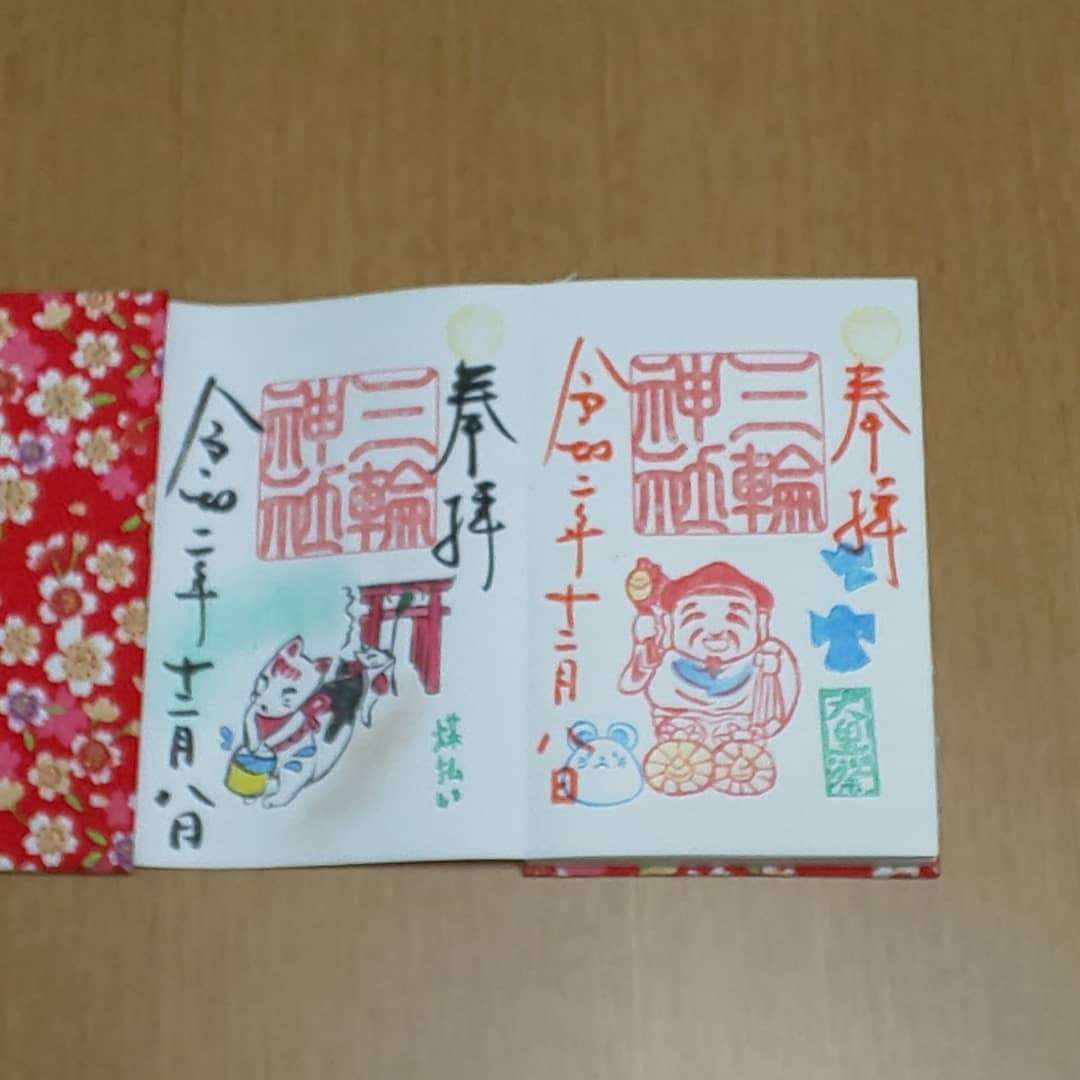 奉拝
三輪
神社
大黒祭
令和二年十二月八日
奉拝
三輪
神社
煤払い
令和二年十二月八日